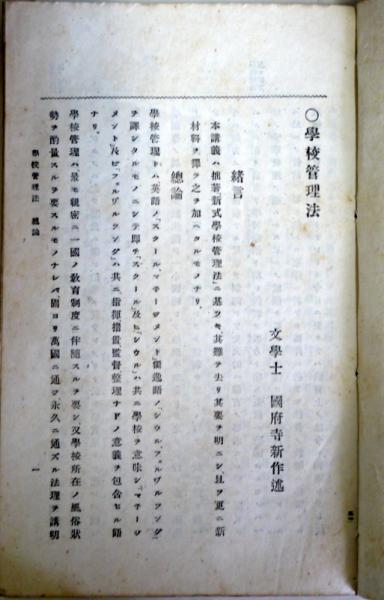 〇學校管理法
文學士 國府寺新作述
緒言
本講義ハ拙著「新式學校管理法」ニ基ツキ其難ヲ去リ其要ヲ明ニシ、且ツ更ニ新
材料ヲ擇ヲ之ヲ加ヘタルモノナリ、
總論
學校管理トハ英語ノ「スクール、マネージメント」獨逸語ノ「シウル、フェルワルツング」
ヲ譯シタルモノニシテ即チ「スクール」及ヒ「シウル」ハ共ニ學校ヲ意味シ「マネージ
メント」及ヒ「フェルワルツング」ハ共ニ指揮措置監督整理ナドノ意義ヲ包含セル語
ナリ、
學校管理ハ最モ親密ニ一國ノ敎育制度ニ伴隨スルヲ要シ又學校所在ノ風俗狀
勢ヲ酌量スルヲ要スルモノナレバ固ヨリ萬國ニ通ジ永久ニ通ズル法理ヲ講明
學校管理法 總論
一